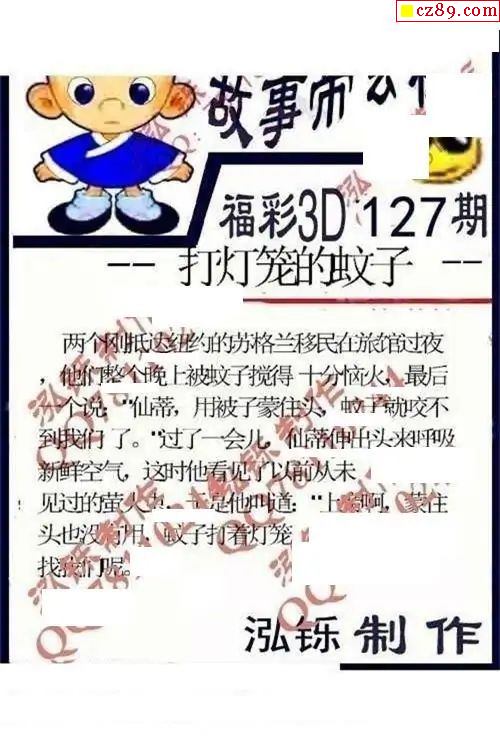 cz89.com
故事
福彩3D 127期
-- 打灯笼的蚊子 --
两个刚抵达纽约的苏格兰移民在旅馆过夜
，他们整个晚上被蚊子搅得 十分恼火，最后
一个说："仙蒂，用被子蒙住头，蚊子就咬不
到我们 了。"过了一会儿，仙蒂伸出头来呼吸
新鲜空气，这时他看见了以前从未
见过的萤火 是他叫道："上 啊，蒙住
头也没有用，蚊子打着灯笼
找我们呢。
泓铄制作